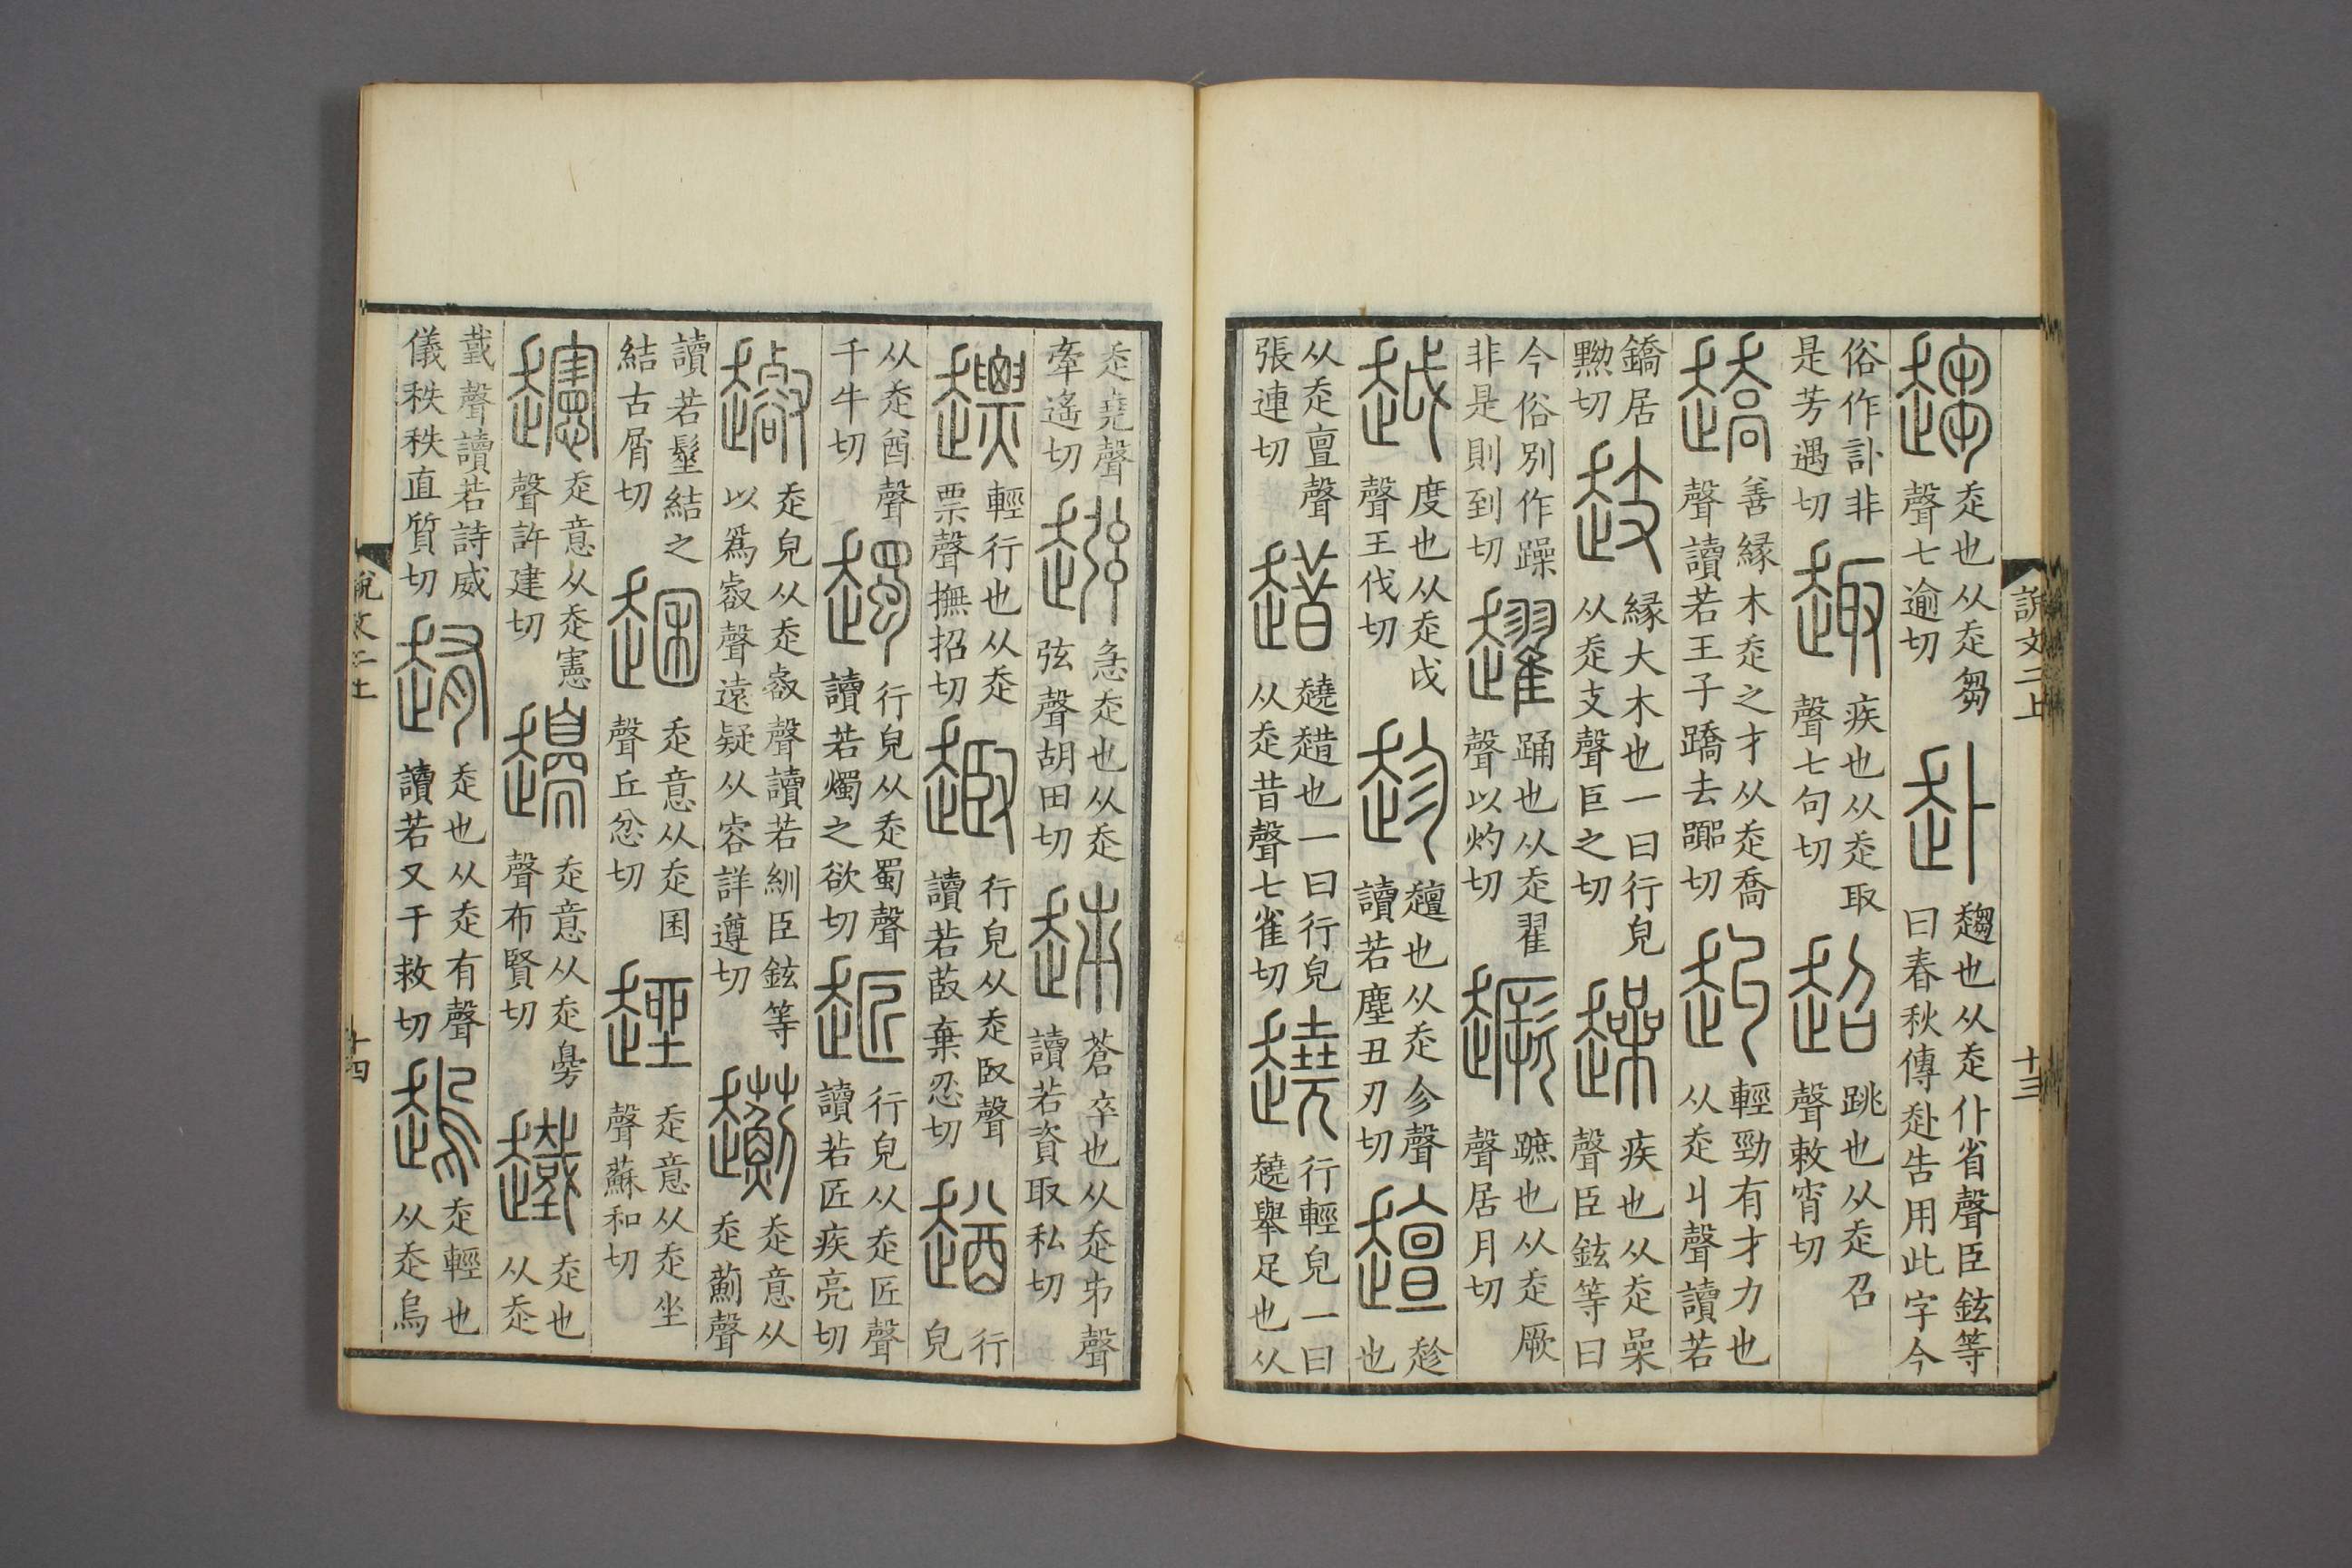 趨走也从走芻聲七逾切赴趨也从走仆省聲臣鉉等曰春秋傳赴告用此字今
俗作訃非是芳遇切趣疾也从走取聲七句切超跳也从走召聲敕宵切
趫善緣木走之才从走喬聲讀若王子蹻去嚻切赳輕勁有才力也从走丩聲讀若
鐈居黝切緣大木也一曰行皃从走支聲巨之切趮疾也从走喿聲臣鉉等曰
今俗別作躁非是則到切趯踊也从走翟聲以灼切蹠也从走厥聲居月切
越度也从走戉聲王伐切趁趲也从走㐱聲讀若塵丑刃切趁也
从走亶聲張連切趞趬趞也一曰行皃从走昔聲七雀切趬行輕皃一曰趬舉足也从
說文二上
十三
走堯聲牽遙切急走也从走弦聲胡田切蒼卒也从走𠂔聲讀若資取私切
輕行也从走票聲撫招切行皃从走臤聲讀若菣棄忍切行皃
从走酋聲千牛切行皃从走蜀聲讀若燭之欲切行皃从走匠聲讀若匠疾亮切
走皃从走叡聲讀若紃臣鉉等以爲叡聲遠疑从睿詳遵切走意从走薊聲
讀若髽結之結古屑切走意从走囷聲丘忿切趖走意从走坐聲蘇和切
走意从走憲聲許建切走意从走臱聲布賢切走也从走
𢧜聲讀若詩威儀秩秩直質切走也从走有聲讀若又于救切走輕也从走烏
說文二上
十四